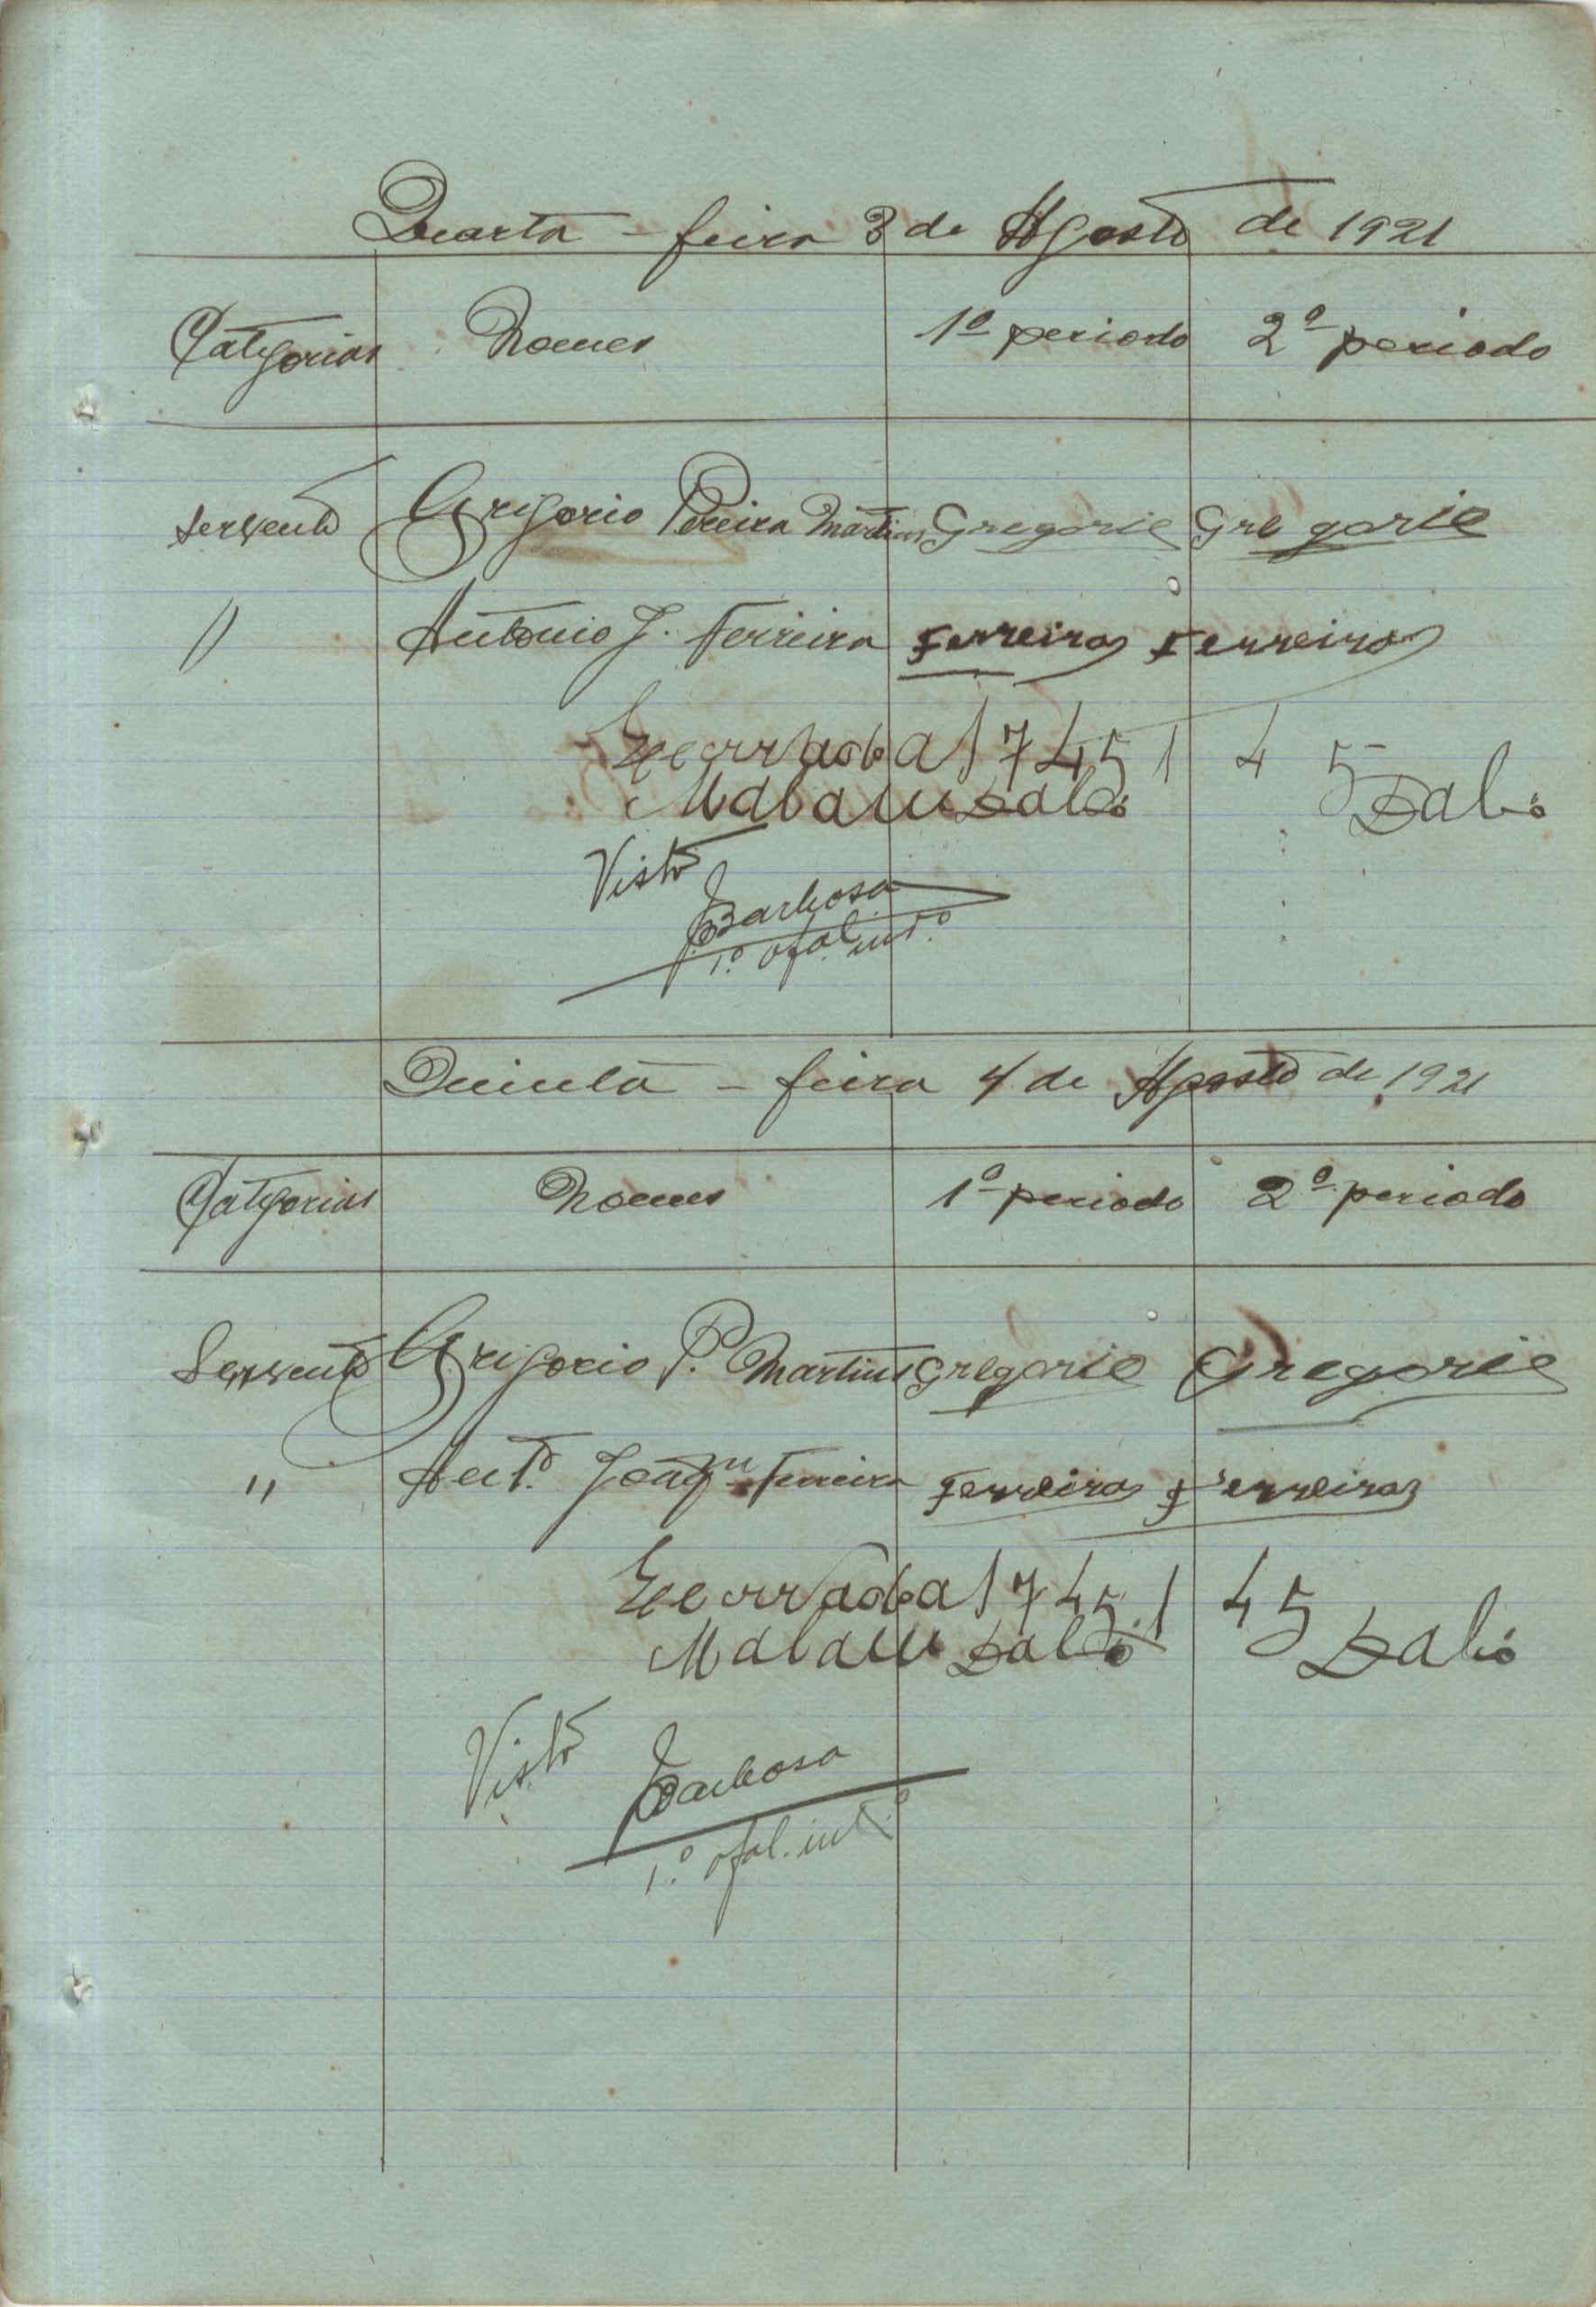 Quarta-feira 3 de Agosto de 1921
Categorias Nomes 1º periodo 2º periodo
Servente Grigorio Pereira Martins Gregorio Gregorio
" Antonio J. Ferreira Ferreira Ferreira
a 1 7 45 1 4 5
Visto
Barbosa
1.º ofal. int.º
Quinta-feira 4 de Agosto de 1921
Categorias Nomes 1º periodo 2º periodo
Servente Grigorio P. Martins Gregorio Gregorio
" Ant.º Joaqm Ferreira Ferreira Ferreira
a 1 7 45 1 4 5
Visto
Barbosa
1.º ofal. int.º